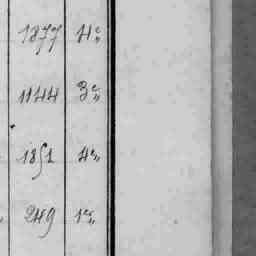 1877 4 c "
1144 3 c "
1851 4 c "
249 1 c "